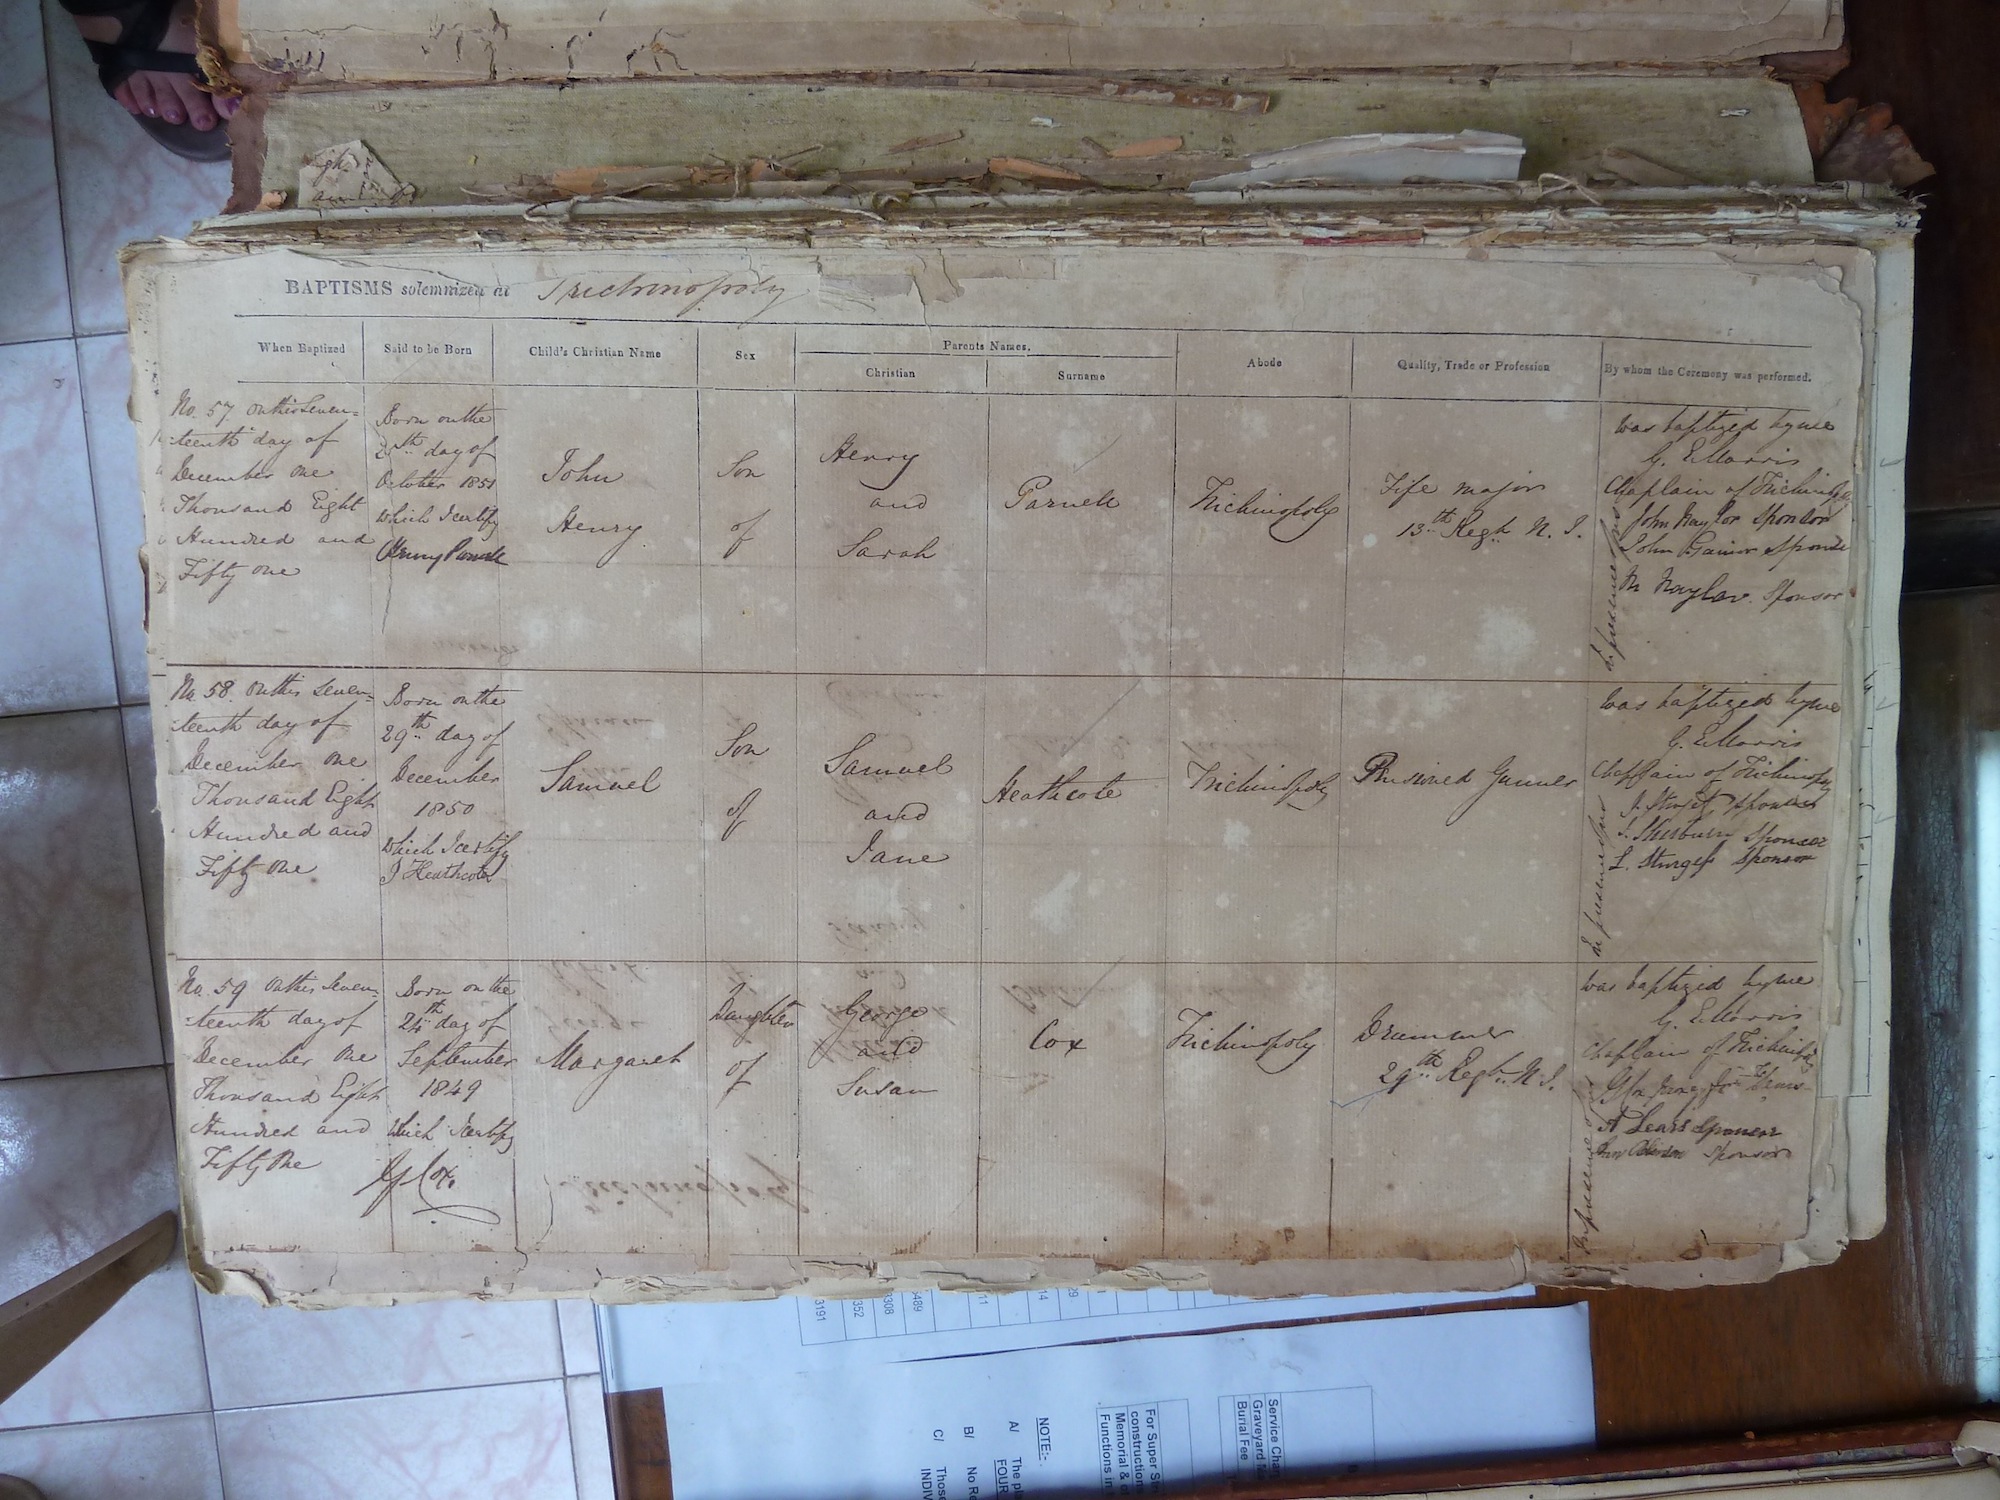 BAPTISMS solemnized at Trichinopoly
When Baptized
Said to be Born
Child's Christian Name
Sex
Parents Names.
Christian
Surname
Abode
Quality, Trade or Profession
By whom the Ceremony was performed.
No. 57 On this Seven-
teenth day of
December One
Thousand Eight
Hundred and
Fifty One
Born on the
day of
October 1851
which I certify
Henry Parnell
John
Henry
Son
of
Henry
and
Sarah
Parnell
Trichinopoly
Fife major
13th Regt. N. I.
was baptized by me
G. E. Morris
Chaplain of Trichinopoly
John Naylor Sponsor
John Sponsor
M Naylor Sponsor
In presence of us
No. 58 On this Seven-
teenth day of
December One
Thousand Eight
Hundred and
Fifty One
Born on the
29th day of
December
1850
which I certify
J Heathcote
Samuel
Son
of
Samuel
and
Jane
Heathcote
Trichinopoly
Pensioned Gunner
was baptized by me
G. E. Morris
Chaplain of Trichinopoly
Sponsor
Sponsor
L. Sturgess Sponsor
In presence of us
No. 59 On this Seven-
teenth day of
December One
Thousand Eight
Hundred and
Fifty One
Born on the
24th day of
September
1849
Which I certify
Cox
Margaret
Daughter
of
George
and
Susan
Cox
Trichinopoly
Drummer
29th Regt. N. I.
was baptized by me
G. E. Morris
Chaplain of Trichinopoly
A Sears Sponsor
Sponsor
In presence of us
3191
352
3308
5489
11
14
29
NOTE:-
A/ The pl
FOUR
B/ No Re
C/ Those
INDIV
For Super St
construction
Memorial & o
Functions in
Service Char
Graveyard Ma
Burial Fee